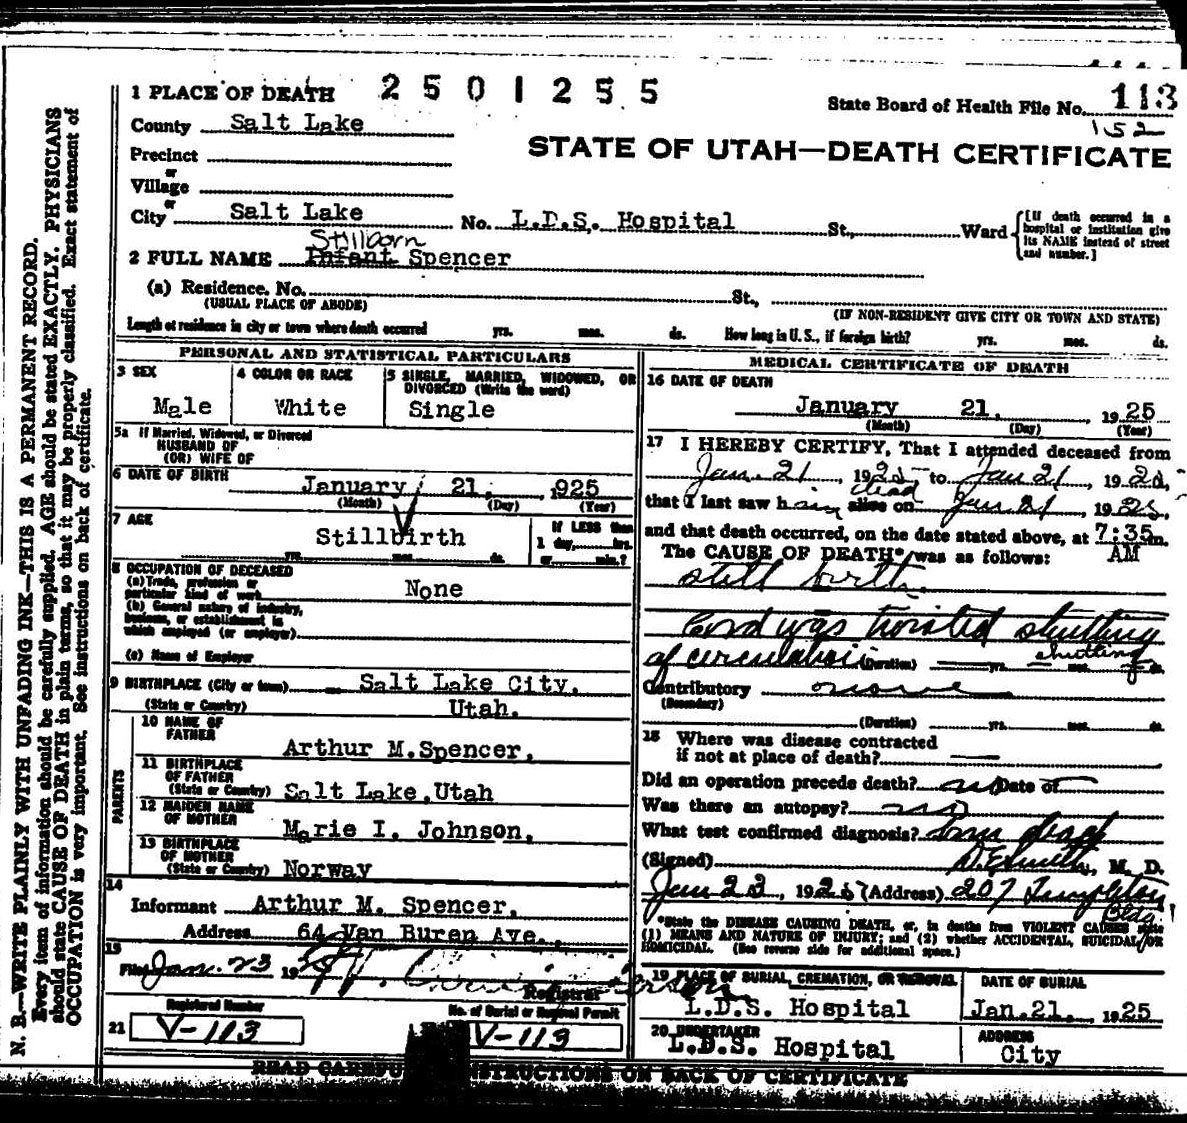 1 PLACE OF DEATH 2501255
State Board of Health File No. 113
152
County Salt Lake
STATE OF UTAH—DEATH CERTIFICATE
Precinct
or
Village
or
City Salt Lake No. L.D.S. Hospital St., Ward
[If death occurred in a hospital or institution give its NAME instead of street and number.]
Stillborn
2 FULL NAME Infant Spencer
(a) Residence. No. St.,
(USUAL PLACE OF ABODE) (IF NON-RESIDENT GIVE CITY OR TOWN AND STATE)
Length of residence in city or town where death occurred yrs. mos. ds. How long in U.S., if foreign birth? yrs. mos. ds.
PERSONAL AND STATISTICAL PARTICULARS
3 SEX
Male
4 COLOR OR RACE
White
5 SINGLE, MARRIED, WIDOWED, OR DIVORCED (Write the word)
Single
5a If Married, Widowed, or Divorced
HUSBAND OF
(OR) WIFE OF
6 DATE OF BIRTH
January 21, 1925
(Month) (Day) (Year)
7 AGE
Stillbirth
yrs. mos. ds.
If LESS than
1 day, hrs.
or min.?
8 OCCUPATION OF DECEASED
(a) Trade, profession or
particular kind of work None
(b) General nature of industry,
business, or establishment in
which employed (or employer)
(c) Name of Employer
9 BIRTHPLACE (City or town) Salt Lake City,
(State or Country) Utah.
PARENTS
10 NAME OF
FATHER
Arthur M.Spencer,
11 BIRTHPLACE
OF FATHER
(State or Country) Salt Lake,Utah
12 MAIDEN NAME
OF MOTHER
Marie I. Johnson,
13 BIRTHPLACE
OF MOTHER
(State or Country) Norway
14
Informant Arthur M. Spencer,
Address 64 Van Buren Ave.,
15
Filed Jan. 23 19
Registrar
Registered Number
No. of Burial or Removal Permit
21 V-113 V-113
MEDICAL CERTIFICATE OF DEATH
16 DATE OF DEATH
January 21, 1925
(Month) (Day) (Year)
17 I HEREBY CERTIFY, That I attended deceased from
Jan. 21 1925 to Jan 21 1925,
dead
that I last saw him alive on Jan. 21 1925,
and that death occurred, on the date stated above, at 7:35 m.
AM
The CAUSE OF DEATH* was as follows:
still birth.
Cord was twisted shutting
of circulation (Duration) yrs. mos. ds.
shutting
Contributory none
(Secondary)
(Duration) yrs. mos. ds.
18 Where was disease contracted
if not at place of death?
Did an operation precede death? no Date of
Was there an autopsy? no
What test confirmed diagnosis? born dead
(Signed) M. D.
Jan 23, 1925 (Address) 207 Templeton
Bldg.
*State the DISEASE CAUSING DEATH, or, in deaths from VIOLENT CAUSES state
(1) MEANS AND NATURE OF INJURY; and (2) whether ACCIDENTAL, SUICIDAL, OR
HOMICIDAL. (See reverse side for additional space.)
19 PLACE OF BURIAL, CREMATION, OR REMOVAL
L.D.S. Hospital
DATE OF BURIAL
Jan.21, 1925
20 UNDERTAKER
L.D.S. Hospital
ADDRESS
City
READ CAREFULLY INSTRUCTIONS ON BACK OF CERTIFICATE
N. B.—WRITE PLAINLY WITH UNFADING INK—THIS IS A PERMANENT RECORD.
Every item of information should be carefully supplied. AGE should be stated EXACTLY. PHYSICIANS
should state CAUSE OF DEATH in plain terms, so that it may be properly classified. Exact statement of
OCCUPATION is very important. See instructions on back of certificate.